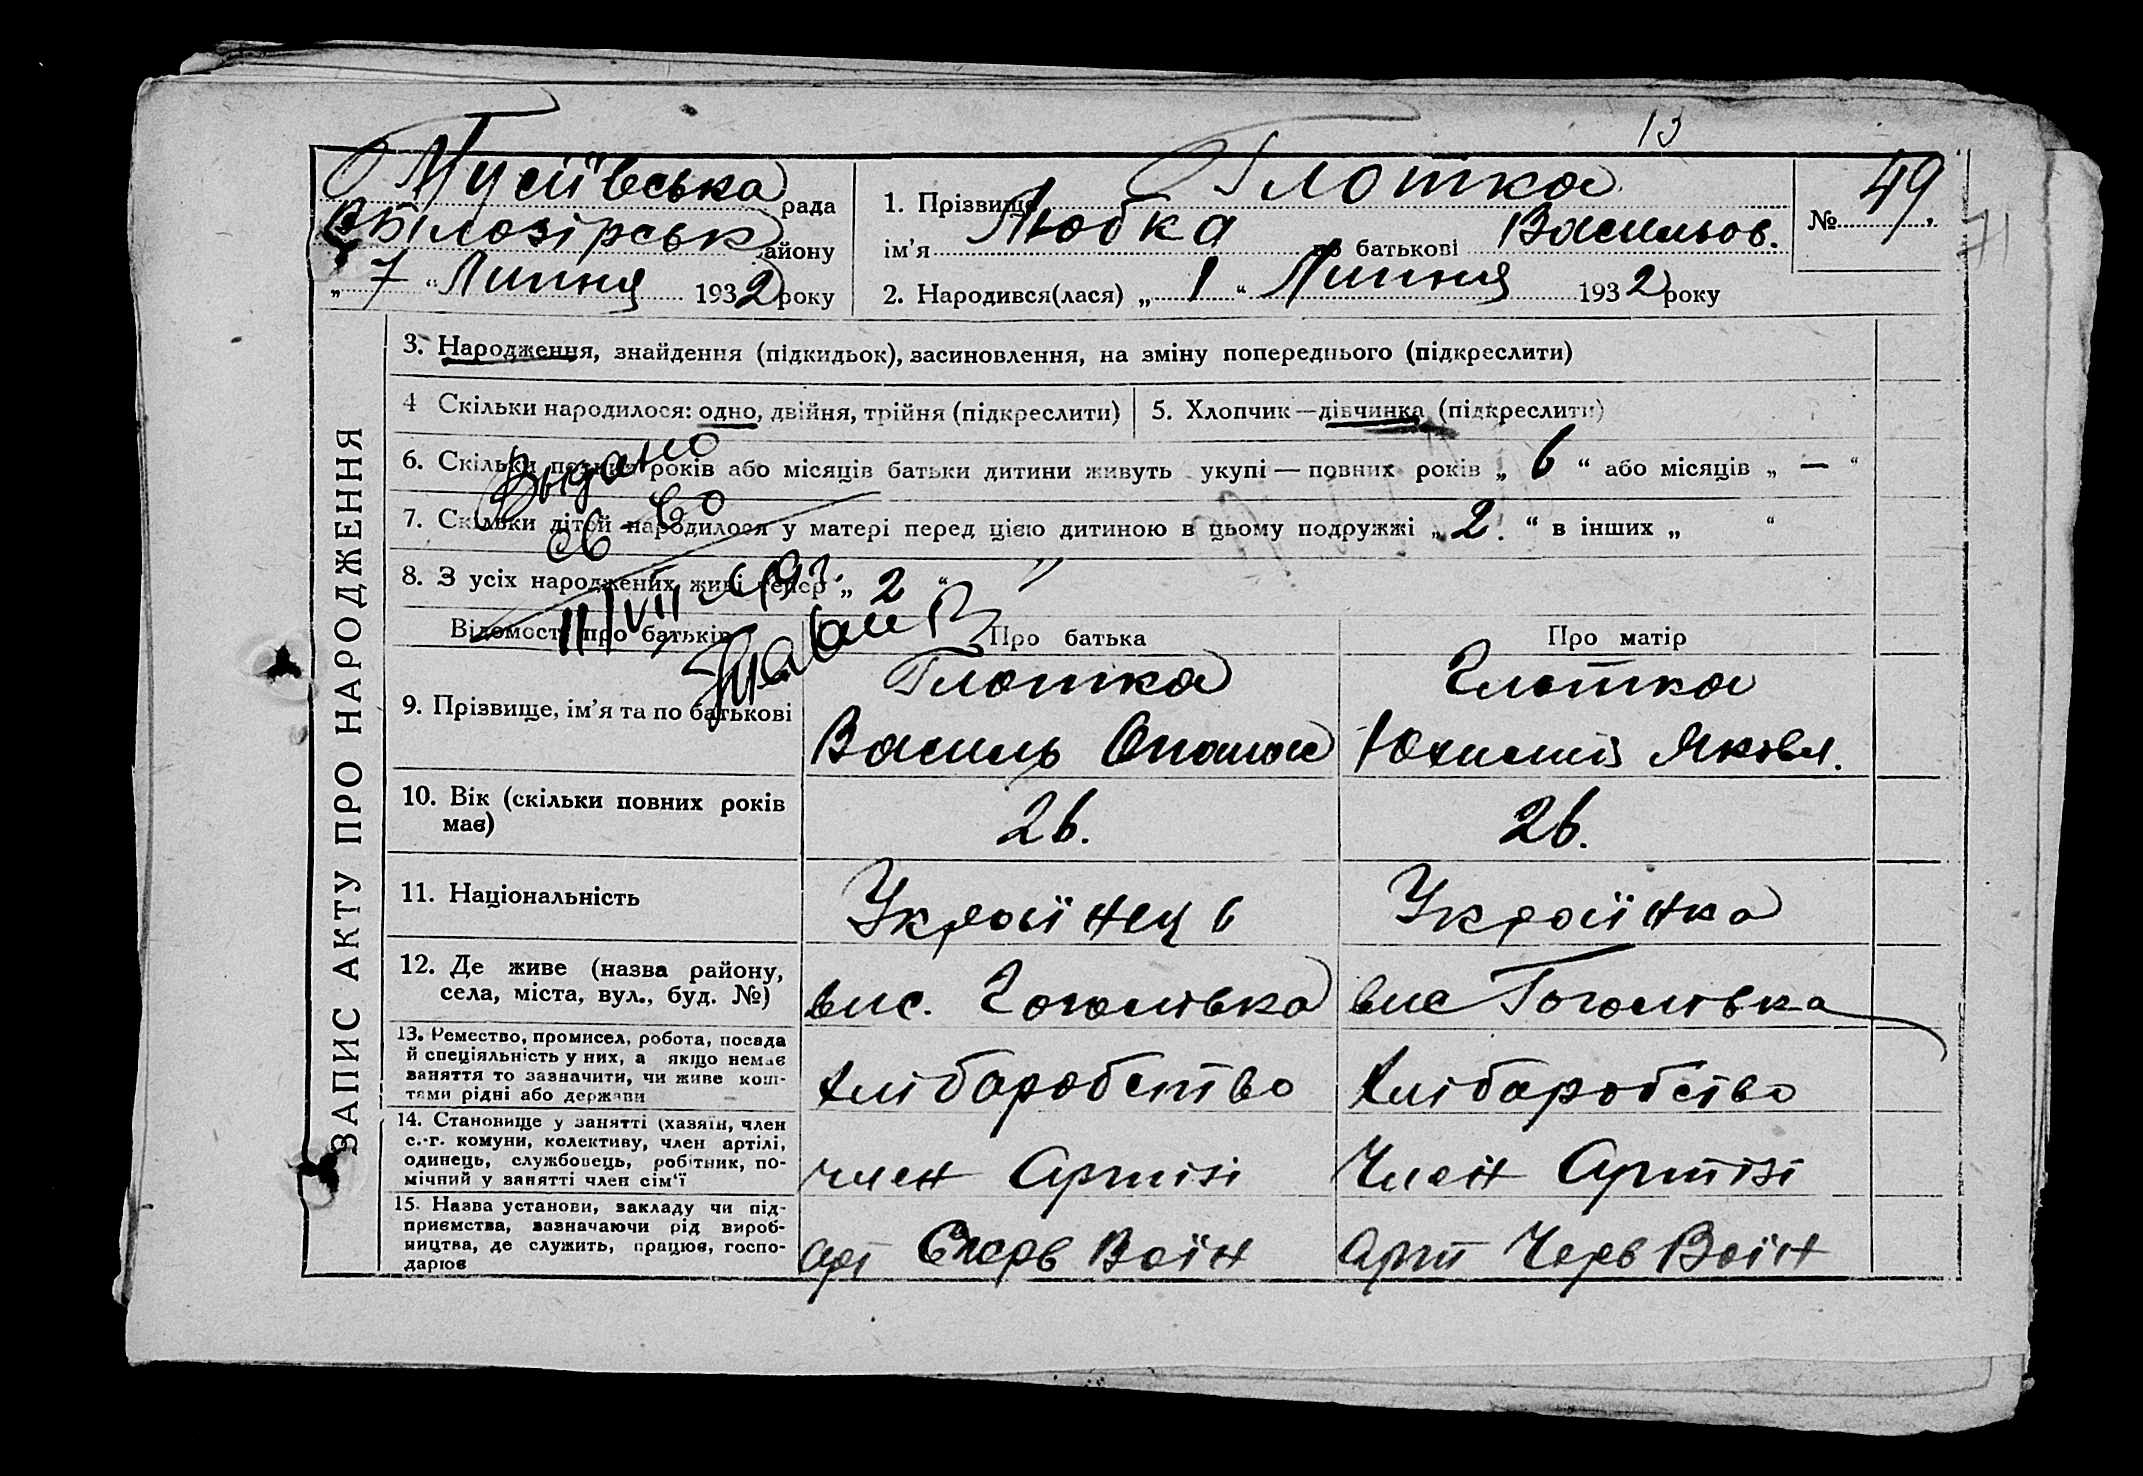 13
Мусіївська рада
Білозірськ району
„7“ Липня 1932 року
1. Прізвище Глотка
ім’я Любка по батькові Васильов.
2. Народився(лася) „1“ Липня 1932 року
№ 49
71
ЗАПИС АКТУ ПРО НАРОДЖЕННЯ
3. Народження, знайдення (підкидьок), засиновлення, на зміну попереднього (підкреслити)
4 Скільки народилося: одно, двійня, трійня (підкреслити)
5. Хлопчик—дівчинка (підкреслити)
6. Скільки повних років або місяців батьки дитини живуть укупі — повних років „6“ або місяців „—“
7. Скільки дітей народилося у матері перед цією дитиною в цьому подружжі „2.“ в інших „ “
8. З усіх народжених живі тепер „2“
Выдано
св-во
11/VII 49г.
Відомості про батьків
Про батька
Про матір
9. Прізвище, ім’я та по батькові
Глотка
Василь Опанас
Глотка
Юхимія Яковл.
10. Вік (скільки повних років
має)
26.
26.
11. Національність
Українець
Українка
12. Де живе (назва району,
села, міста, вул., буд. №)
вис. Гоголівка
вис Гоголівка
13. Ремество, промисел, робота, посада
й спеціяльність у них, а якщо немає
заняття то зазначити, чи живе кош-
тами рідні або держави
хлібаробство
хлібаробство
14. Становище у занятті (хазяїн, член
с.-г. комуни, колективу, член артілі,
одинець, службовець, робітник, по-
мічний у занятті член сім’ї
член Артілі
Член Артілі
15. Назва установи, закладу чи під-
приємства, зазначаючи рід вироб-
ництва, де служить, працює, госпо-
дарює
арт Черв Воїн
Арт Черв Воїн